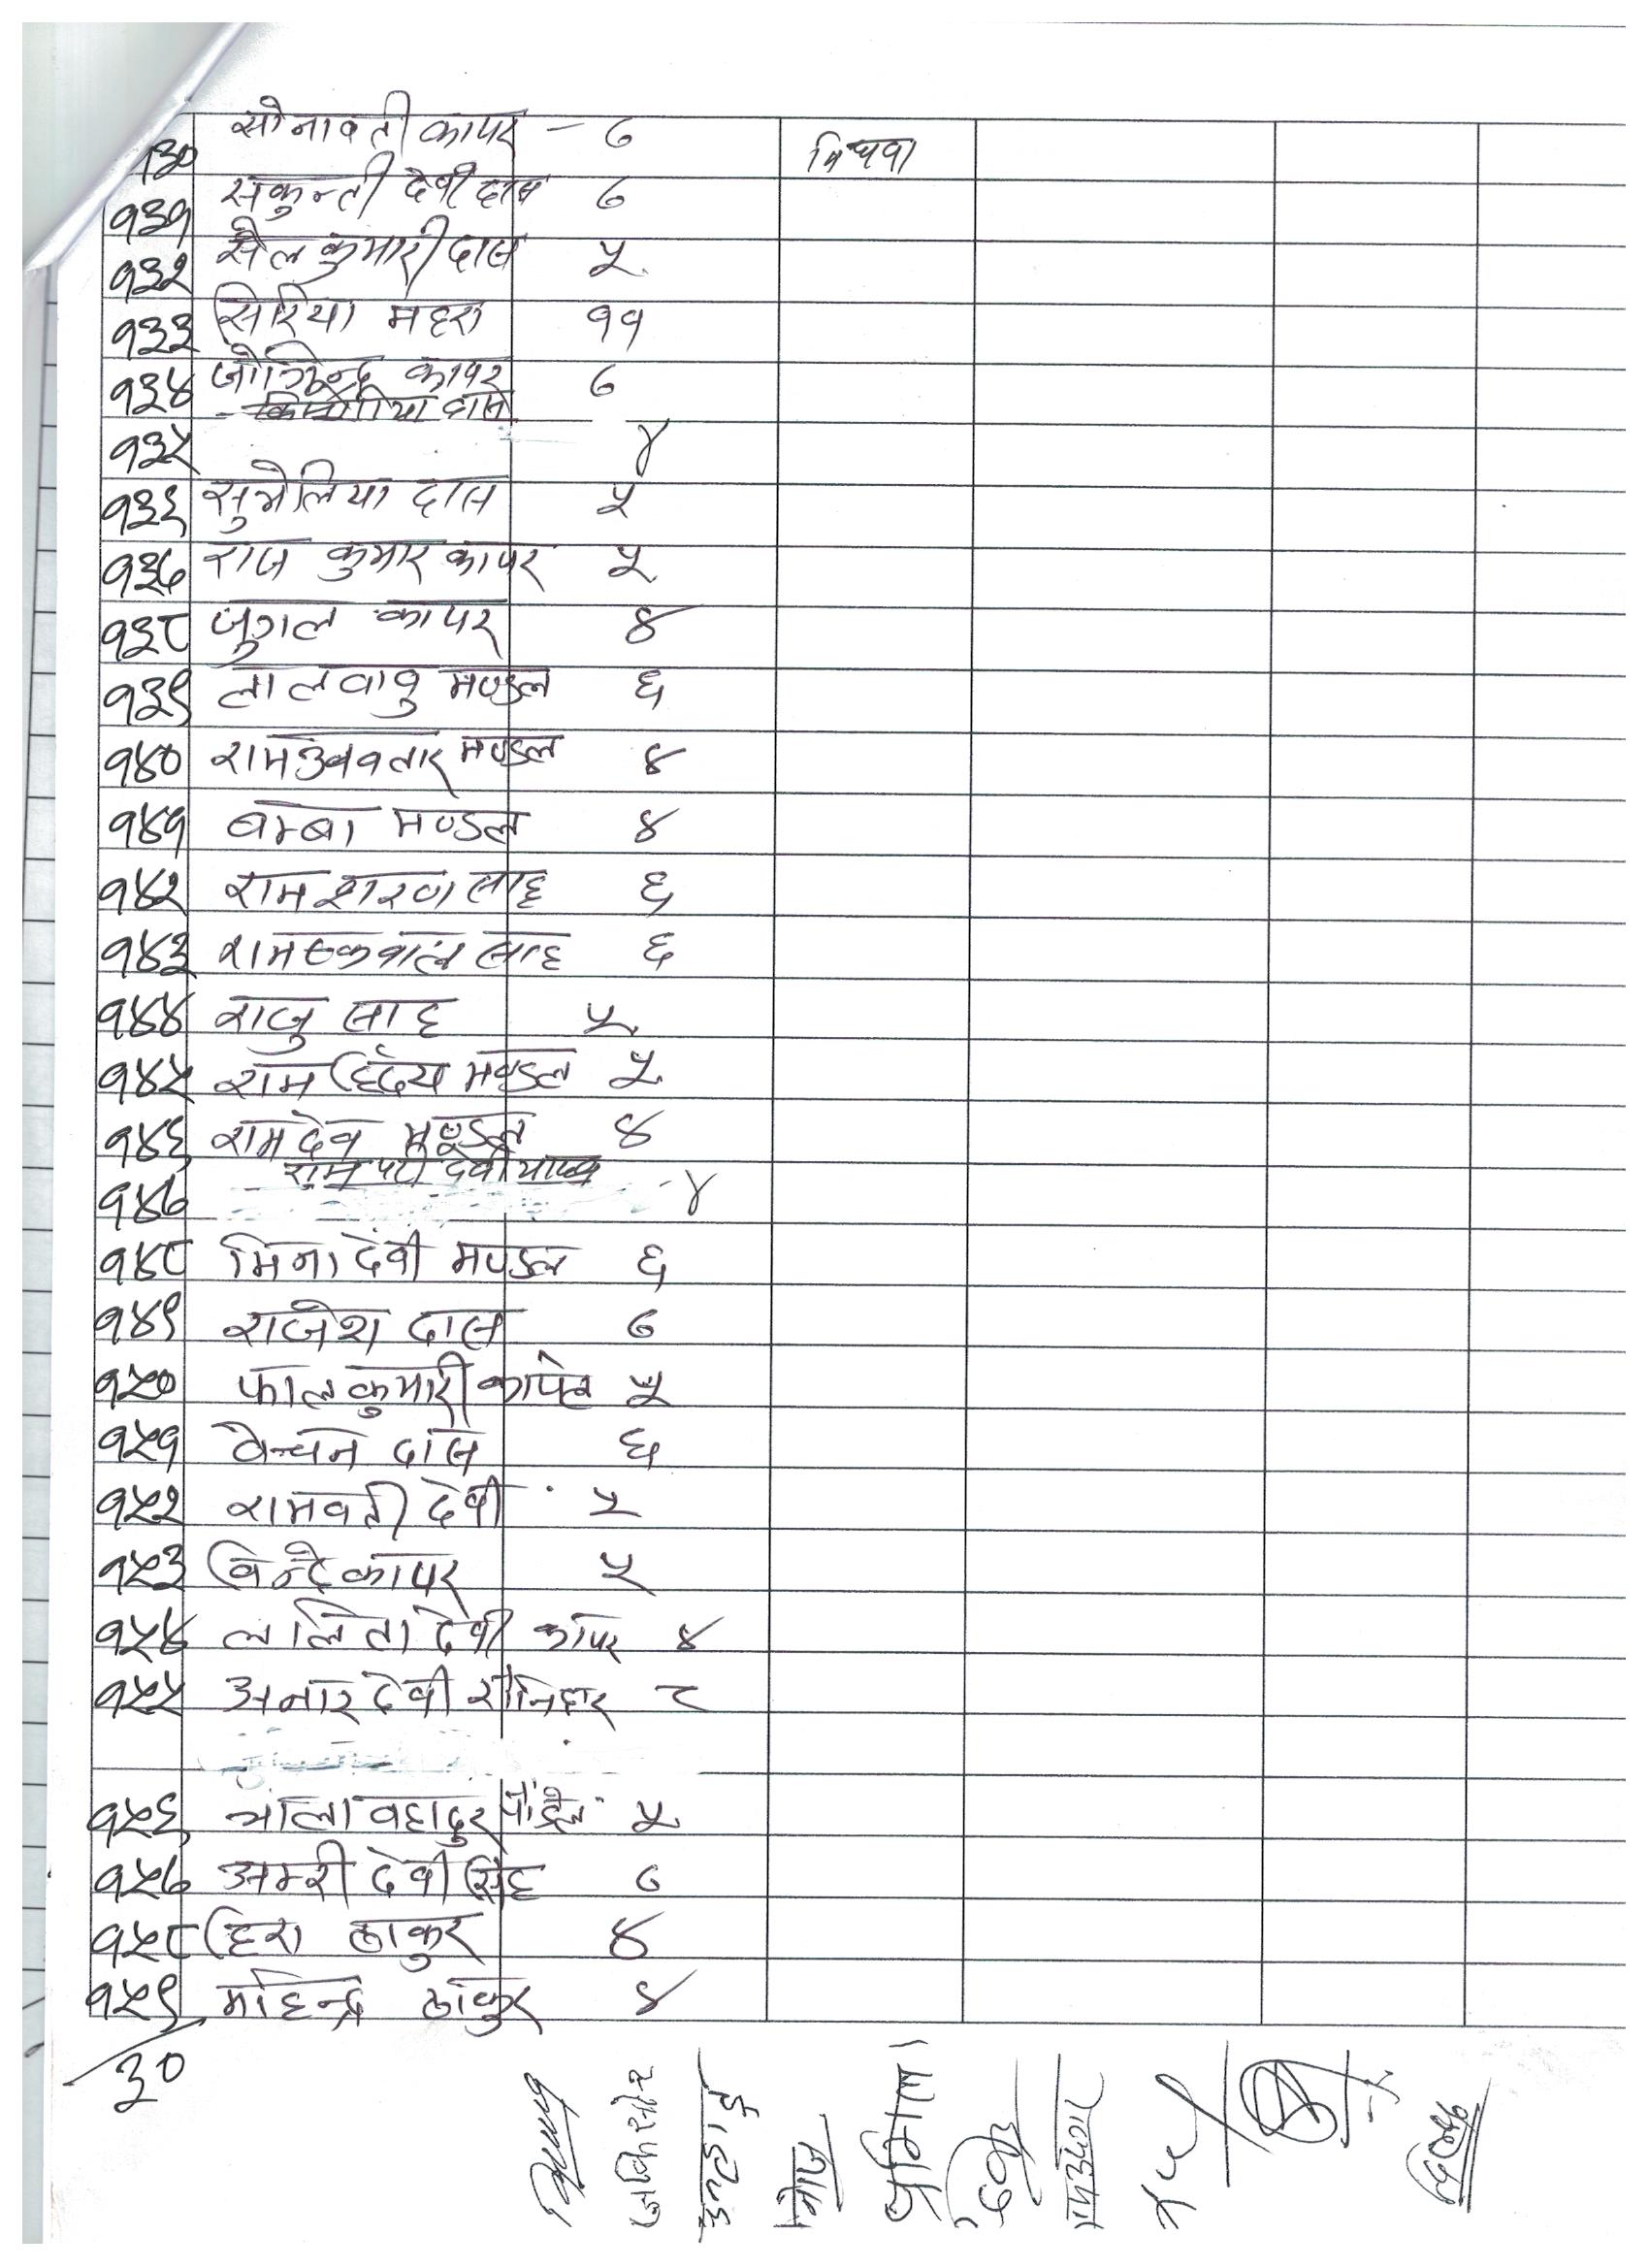 १३० सोनावती कापर - ७ विधवा
१३१ सकुन्ती देवी दास ७
१३२ सैल कुमारी दास ५
१३३ सिरिया महरा ११
१३४ जोगिन्द्र कापर ७
दास
१३५ ४
१३६ सुमेलिया दास ५
१३७ राज कुमार कापर ५
१३८ जुगल कापर ४
१३९ लालवावु मण्डल ६
१४० मण्डल ४
१४१ बम्बा मण्डल ४
१४२ राम शरण साह ६
१४३ रामएकवाल साह ६
१४४ राजु साह ५
१४५ राम ह्रिदय मण्डल ५
१४६ रामदेव मण्डल ४
१४७ ४
१४८ मिना देवी मण्डल ६
१४९ राजेश दास ७
१५० फालकुमारी ५
१५१ वेन्चन दास ६
१५२ रामवती देवी ५
१५३ विन्दे कापर ५
१५४ ललिता देवी कापर ४
१५५ अनार देवी ८
१५६ भोला वहादुर पौडेल ५
१५७ अमरी देवी सिंह ७
१५८ हिरा ठाकुर ४
१५९ महिन्द्र ठाकुर ४
३०